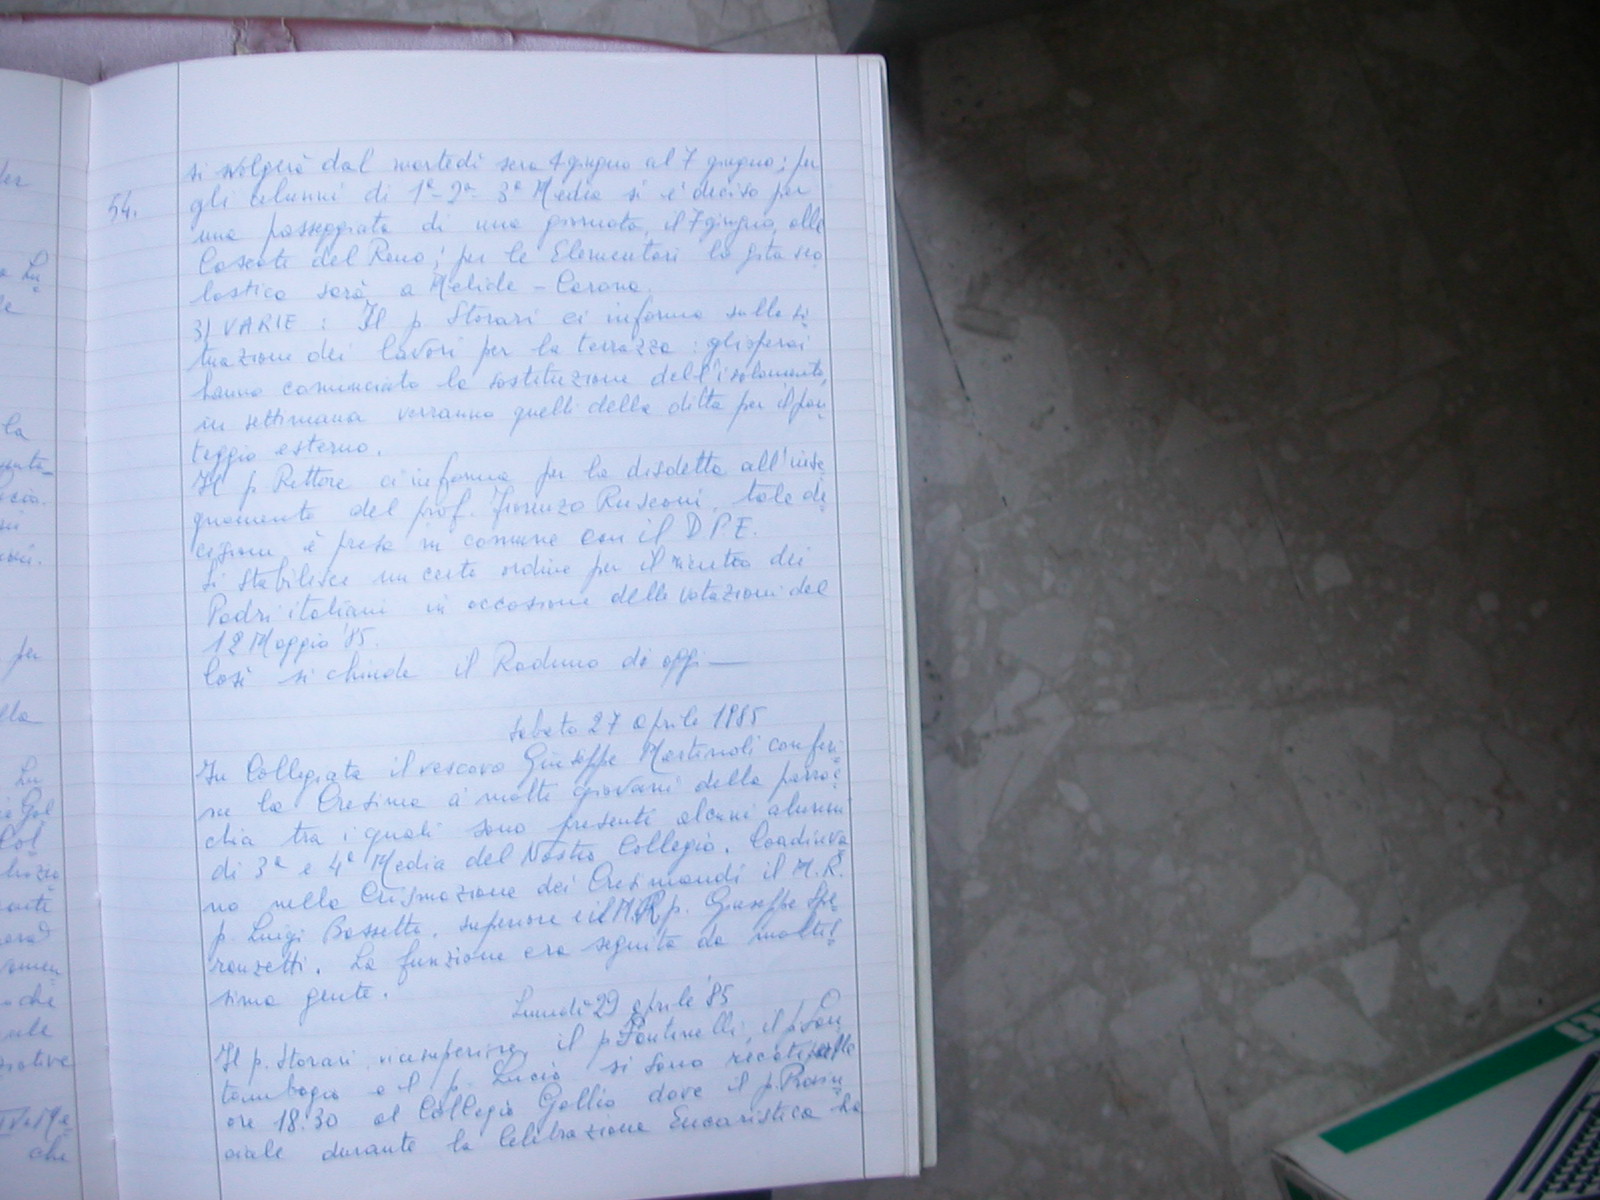 si svolgerà dal martedì sera 4 giugno al 7 giugno; per
54.
gli alunni di 1ª-2ª-3ª Media si è deciso per
una passeggiata di una giornata, il 7 giugno, alle
Cascate del Reno; per le Elementari la gita sco
lastica sarà a Melide - Carona.
3) VARIE : Il p. Storari ci informa sulla si
tuazione dei lavori per la terrazza : gli operai
hanno cominciato la sostituzione dell'isolamento,
in settimana verranno quelli della ditta per il pon
teggio esterno.
Il p. Rettore ci informa per la disdetta all'inse
gnamento del prof. Fiorenzo Rusconi, tale de
cisione è presa in comune con il D.P.E.
Si stabilisce un certo ordine per il rientro dei
Padri italiani in occasione delle votazioni del
12 Maggio '85.
Così si chiude il Raduno di oggi —
Sabato 27 aprile 1985
In Collegiata il vescovo Giuseppe Martinoli conferi
sce la Cresima a molti giovani della parroc
chia tra i quali sono presenti alcuni alunni
di 3ª e 4ª Media del Nostro Collegio. Coadiuva
no nella Crismazione dei Cresimandi il M.R.
p. Luigi Bassetto, superiore e il M.R. p. Giuseppe Spe
ranzetti. La funzione era seguita da moltis
sima gente.
Lunedì 29 aprile '85
Il p. Storari, vicesuperiore, il p. Fontinelli, il p. San
tambogio e il p. Lucio si sono recati alle
ore 18.30 al Collegio Gallio dove il p.
ciale durante la Celebrazione Eucaristica ha